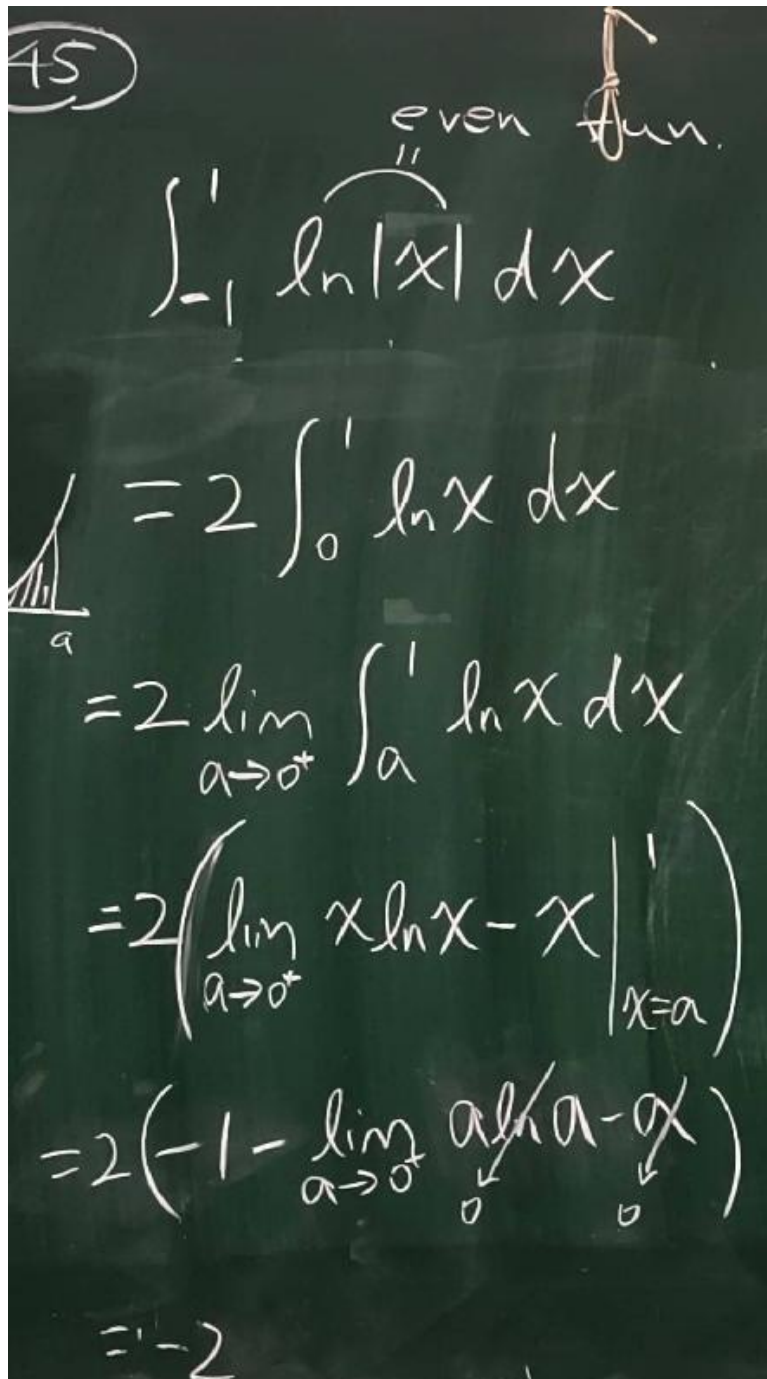 45
even fun.
∫_{-1}^{1} ln|x| dx
= 2 ∫_0^1 ln x dx
a
= 2 lim_{a→0⁺} ∫_a^1 ln x dx
= 2( lim_{a→0⁺} x ln x - x |_{x=a}^{1} )
= 2( -1 - lim_{a→0⁺} a ln a - a )
0 0
= -2